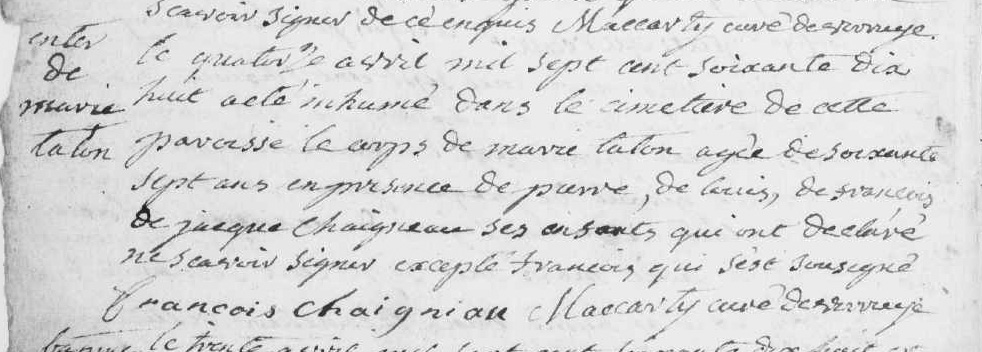 scavoir signer de ce enquis Maccarty curé de verruye.
enter
de
marie
taton
le quatorze avril mil sept cent soixante dix
huit a eté inhumé dans le cimetiere de cette
paroisse le corps de marie taton agée de soixante
sept ans en presence de pierre, de louis, de francois
de jacque chaigneau ses enfants qui ont declaré
ne scavoir signer excepté francois qui s'est sousigné
francois chaigniau Maccarty curé de verruye
le trente avril mil sept cent soixante dix huit